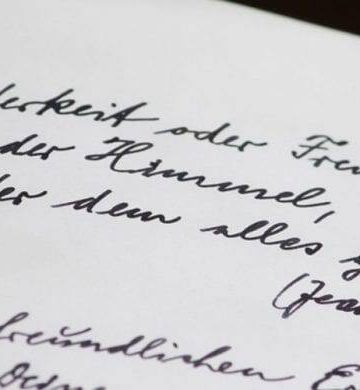 derkeit oder Freu
der Himmel,
der dem alles g
(Jean
freundlichen E